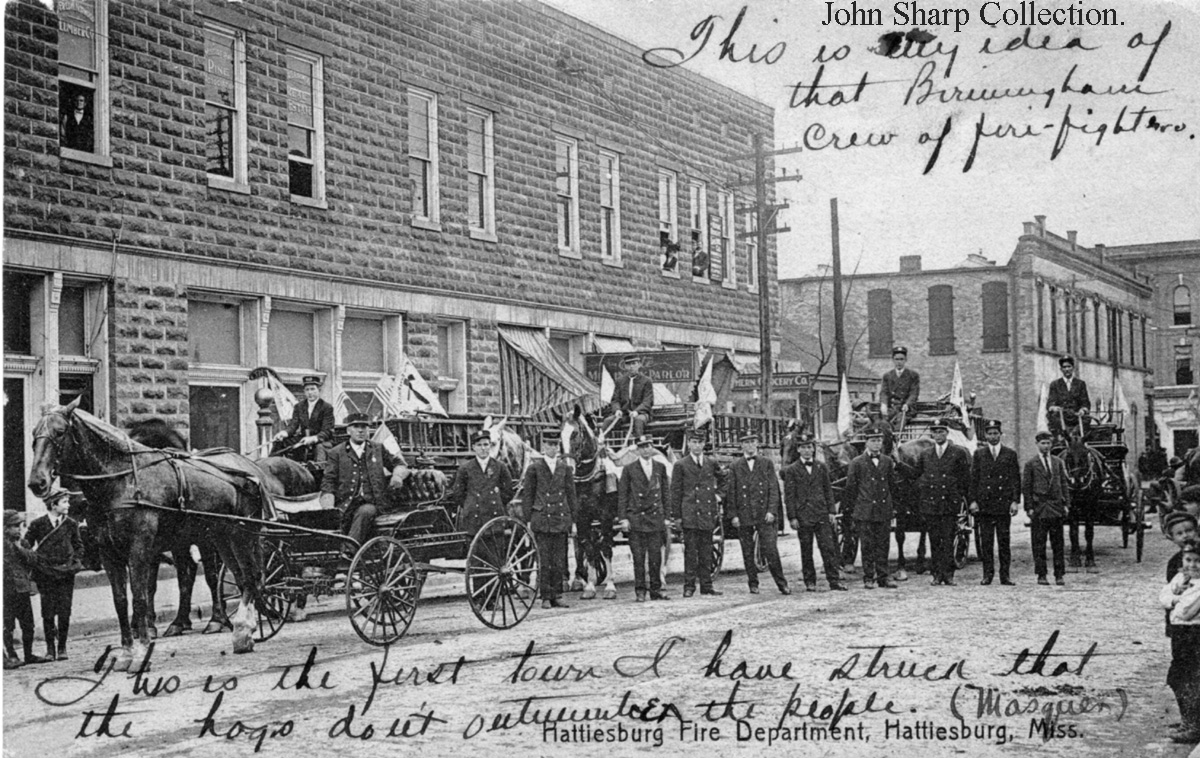 John Sharp Collection.
This is my idea of
that Birmingham
Crew of fire-fighters.
LUMBER Co
PARLOR
HERN BAKERY Co.
This is the first town I have struck that
the hogs don't outnumber the people. (Masquen)
Hattiesburg Fire Department, Hattiesburg, Miss.